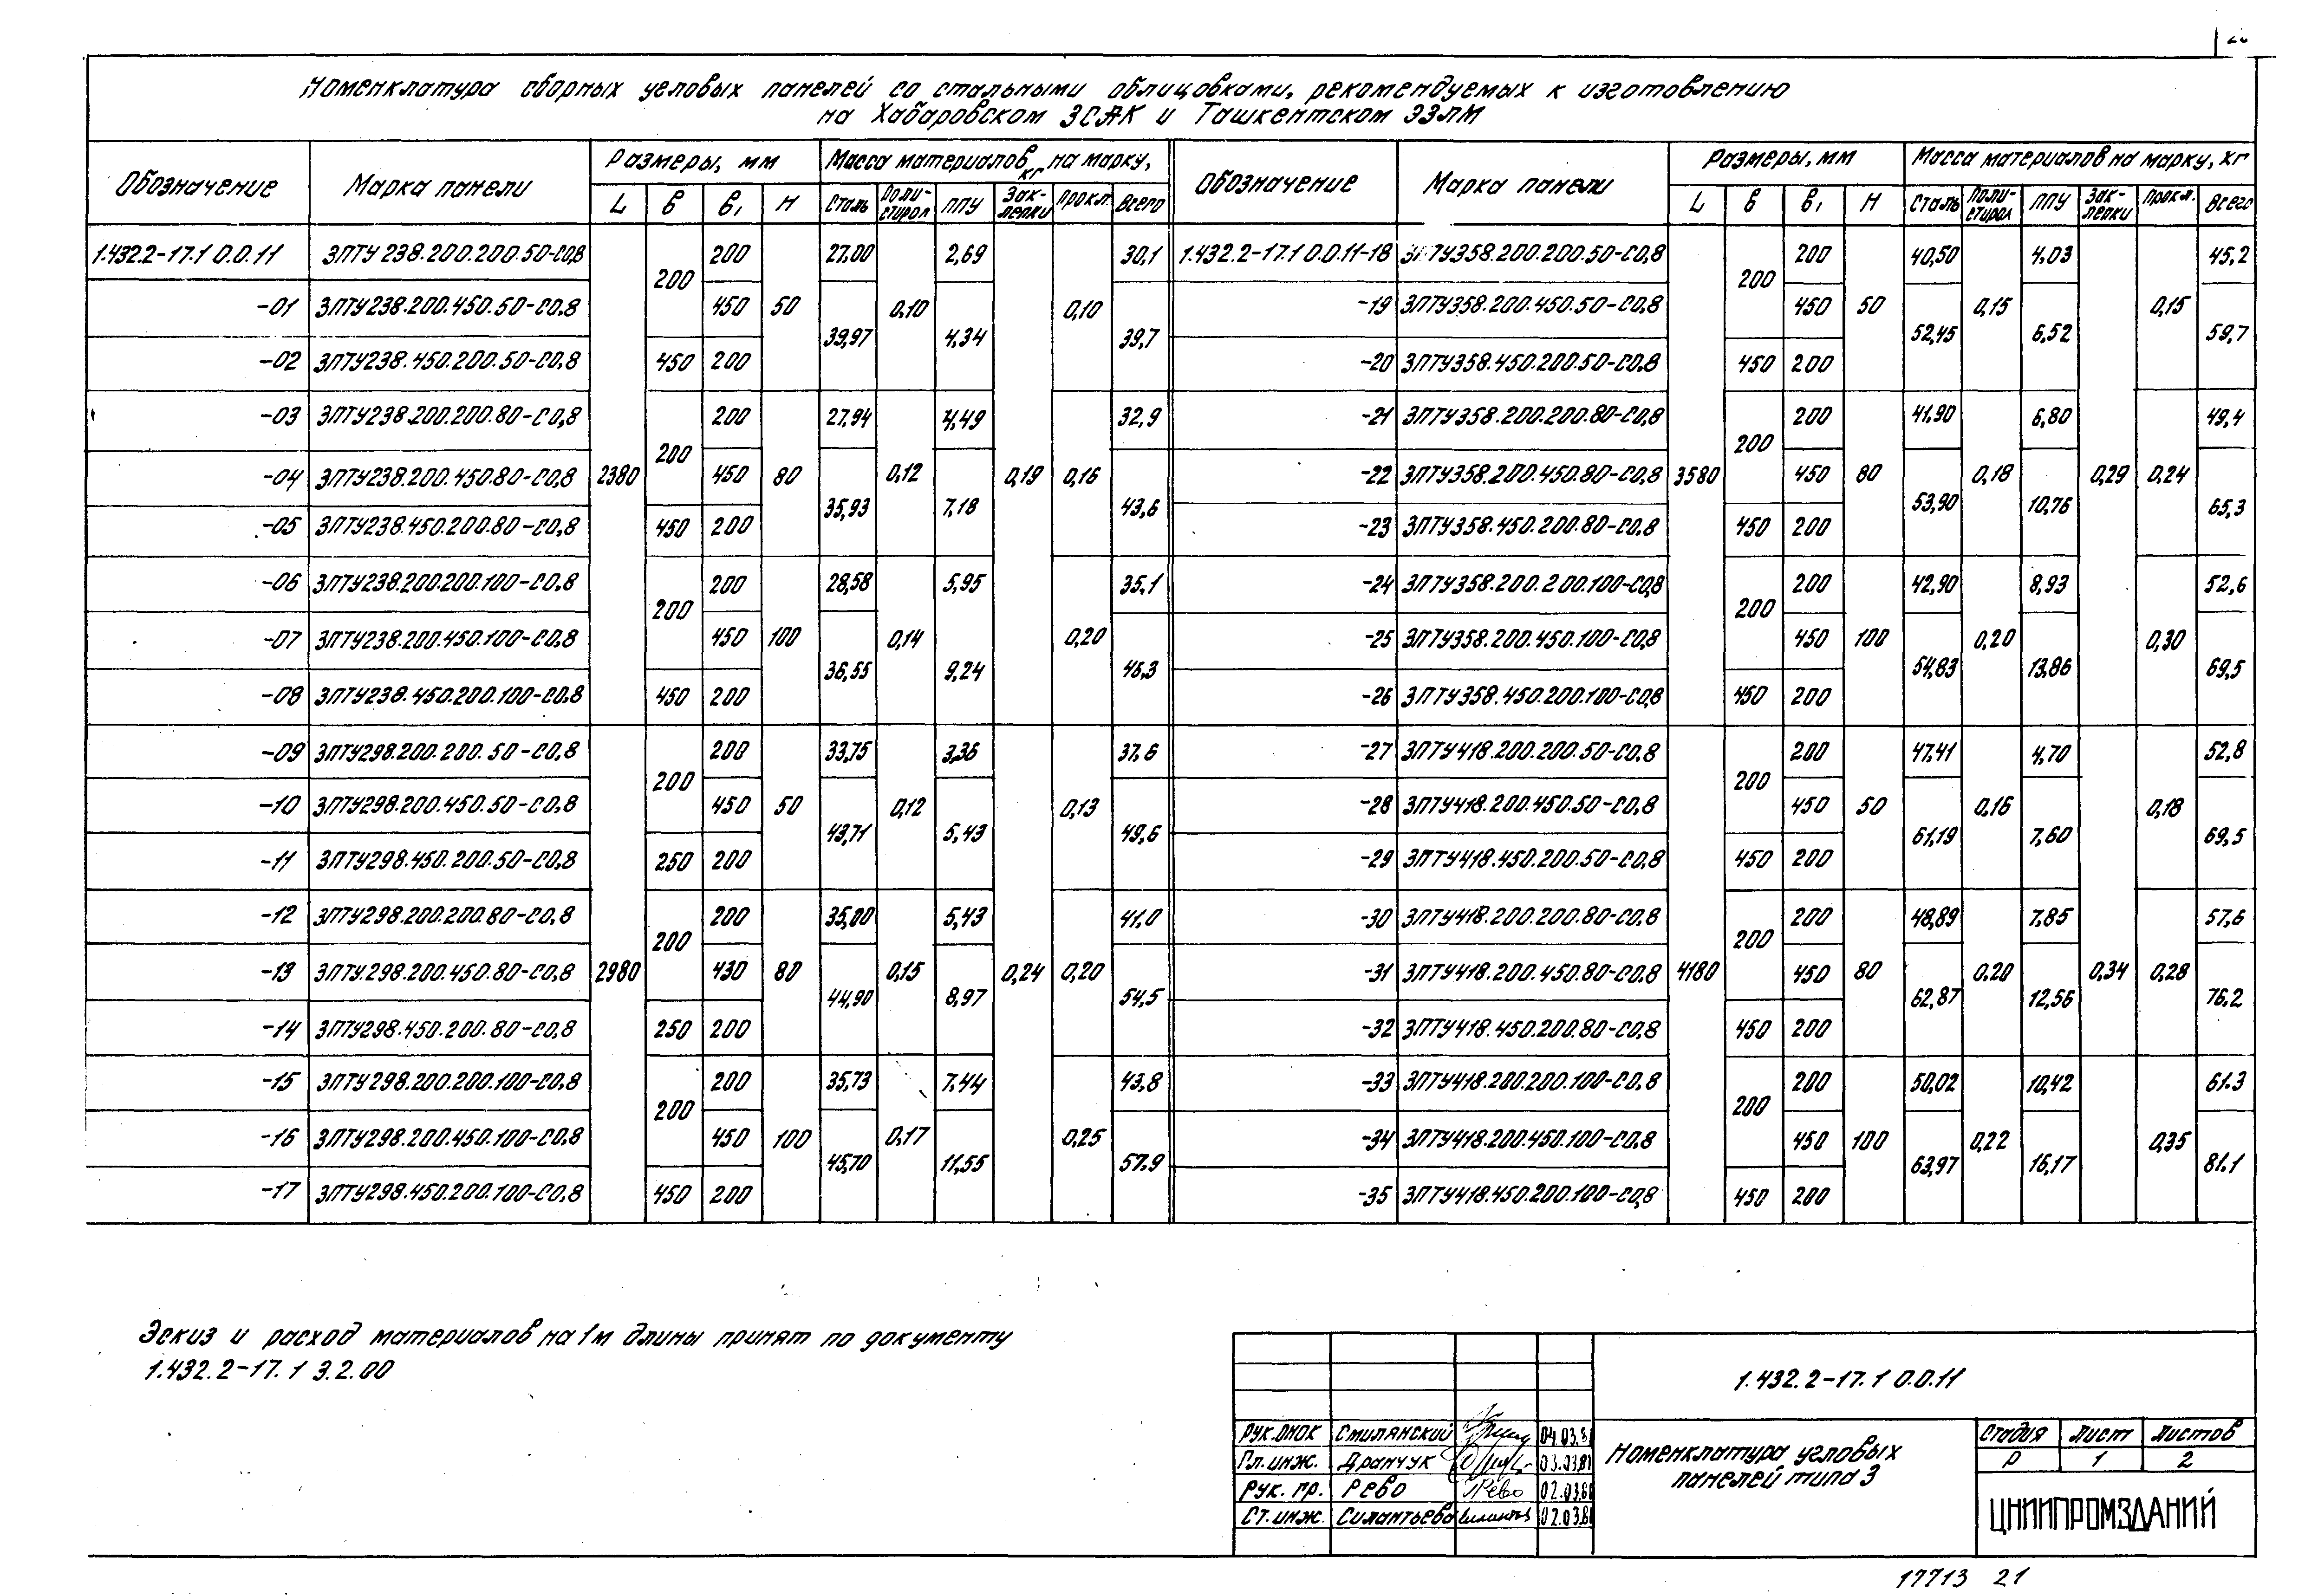 Номенклатура сборных угловых панелей со стальными облицовками, рекомендуемых к изготовлению
на Хабаровском ЗСАК и Ташкентском ЭЗЛМ
Обозначение Марка панели Размеры, мм Масса материалов на марку, кг Обозначение Марка панели Размеры, мм Масса материалов на марку, кг
L в в₁ Н Сталь Поли-стирол ППУ Зак-лепки Прокл. Всего L в в₁ Н Сталь Поли-стирол ППУ Зак-лепки Прокл. Всего
1.432.2-17.1 0.0.11 3ПТУ238.200.200.50-С0,8 2380 200 200 50 27,00 0,10 2,69 0,19 0,10 30,1 1.432.2-17.1 0.0.11-18 3ПТУ358.200.200.50-С0,8 3580 200 200 50 40,50 0,15 4,03 0,29 0,15 45,2
-01 3ПТУ238.200.450.50-С0,8 450 39,97 4,34 39,7 -19 3ПТУ358.200.450.50-С0,8 450 52,45 6,52 59,7
-02 3ПТУ238.450.200.50-С0,8 450 200 -20 3ПТУ358.450.200.50-С0,8 450 200
-03 3ПТУ238.200.200.80-С0,8 200 200 80 27,94 0,12 4,49 0,16 32,9 -21 3ПТУ358.200.200.80-С0,8 200 200 80 41,90 0,18 6,80 0,24 49,4
-04 3ПТУ238.200.450.80-С0,8 450 35,93 7,18 43,6 -22 3ПТУ358.200.450.80-С0,8 450 53,90 10,76 65,3
-05 3ПТУ238.450.200.80-С0,8 450 200 -23 3ПТУ358.450.200.80-С0,8 450 200
-06 3ПТУ238.200.200.100-С0,8 200 200 100 28,58 0,14 5,95 0,20 35,1 -24 3ПТУ358.200.200.100-С0,8 200 200 100 42,90 0,20 8,93 0,30 52,6
-07 3ПТУ238.200.450.100-С0,8 450 36,55 9,24 46,3 -25 3ПТУ358.200.450.100-С0,8 450 54,83 13,86 69,5
-08 3ПТУ238.450.200.100-С0,8 450 200 -26 3ПТУ358.450.200.100-С0,8 450 200
-09 3ПТУ298.200.200.50-С0,8 2980 200 200 50 33,75 0,12 3,36 0,24 0,13 37,6 -27 3ПТУ418.200.200.50-С0,8 4180 200 200 50 47,41 0,16 4,70 0,34 0,18 52,8
-10 3ПТУ298.200.450.50-С0,8 450 43,71 5,43 49,6 -28 3ПТУ418.200.450.50-С0,8 450 61,19 7,60 69,5
-11 3ПТУ298.450.200.50-С0,8 250 200 -29 3ПТУ418.450.200.50-С0,8 450 200
-12 3ПТУ298.200.200.80-С0,8 200 200 80 35,00 0,15 5,43 0,20 41,0 -30 3ПТУ418.200.200.80-С0,8 200 200 80 48,89 0,20 7,85 0,28 57,6
-13 3ПТУ298.200.450.80-С0,8 430 44,90 8,97 54,5 -31 3ПТУ418.200.450.80-С0,8 450 62,87 12,56 76,2
-14 3ПТУ298.450.200.80-С0,8 250 200 -32 3ПТУ418.450.200.80-С0,8 450 200
-15 3ПТУ298.200.200.100-С0,8 200 200 100 35,73 0,17 7,44 0,25 43,8 -33 3ПТУ418.200.200.100-С0,8 200 200 100 50,02 0,22 10,42 0,35 61.3
-16 3ПТУ298.200.450.100-С0,8 450 45,70 11,55 57,9 -34 3ПТУ418.200.450.100-С0,8 450 63,97 16,17 81.1
-17 3ПТУ298.450.200.100-С0,8 450 200 -35 3ПТУ418.450.200.100-С0,8 450 200
Эскиз и расход материалов на 1м длины принят по документу
1.432.2-17.1 3.2.00
1.432.2-17.1 0.0.11
Рук.ОНОК Смилянский 04.03.8
Гл.инж. Дранчук 03.03.81
Рук.гр. Рево Рево 02.03.8
Ст.инж. Силантьева 02.03.8
Номенклатура угловых
панелей типа 3
Стадия Лист Листов
Р 1 2
ЦНИИПРОМЗДАНИЙ
17713 21